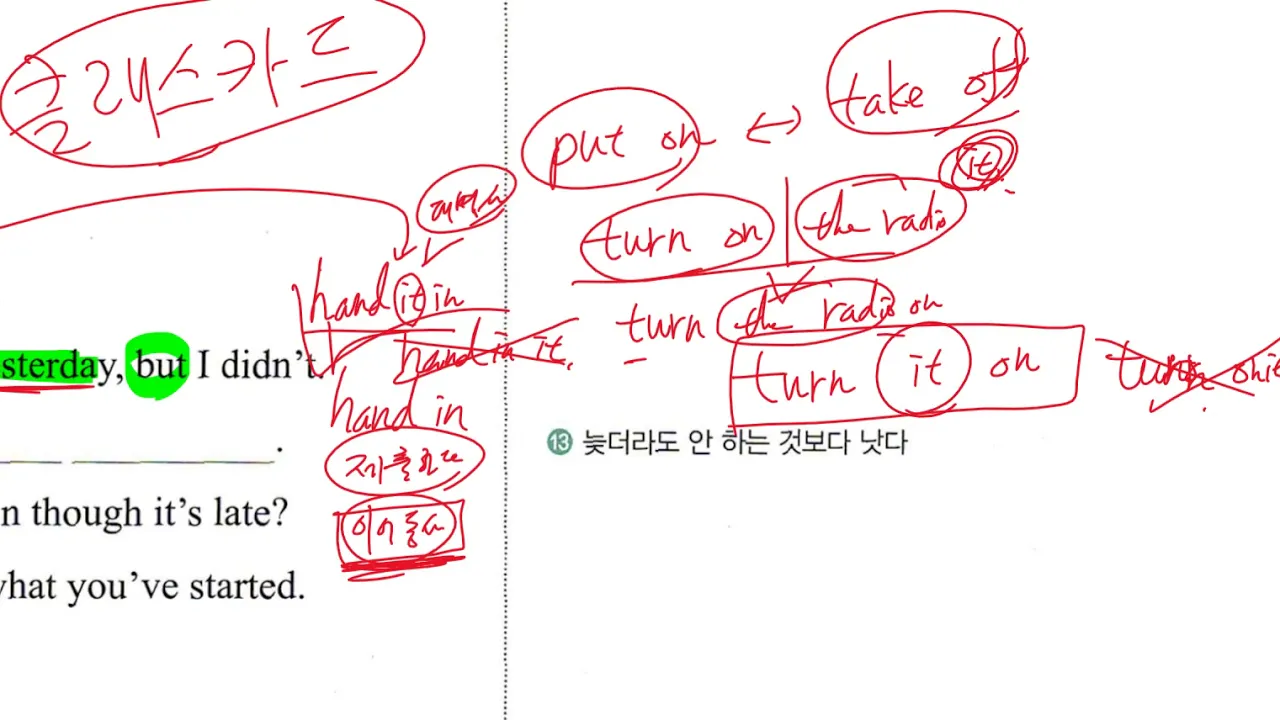 클래스카드
put on ↔ take off
it
대명사
turn on | the radio
hand it in
turn the radio on
hand in it.
turn it on
turn on it
sterday, but I didn't.
hand in
.
제출하다
⑬ 늦더라도 안 하는 것보다 낫다
n though it's late?
이어동사
what you've started.